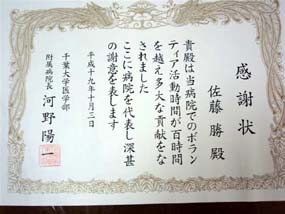 感謝状
佐藤勝殿
貴殿は当病院でのボラン
ティア活動時間が百時間
を越え多大な貢献をな
されました
ここに病院を代表し深甚
の謝意を表します
平成十九年十月三日
千葉大学医学部
附属病院長 河野陽一